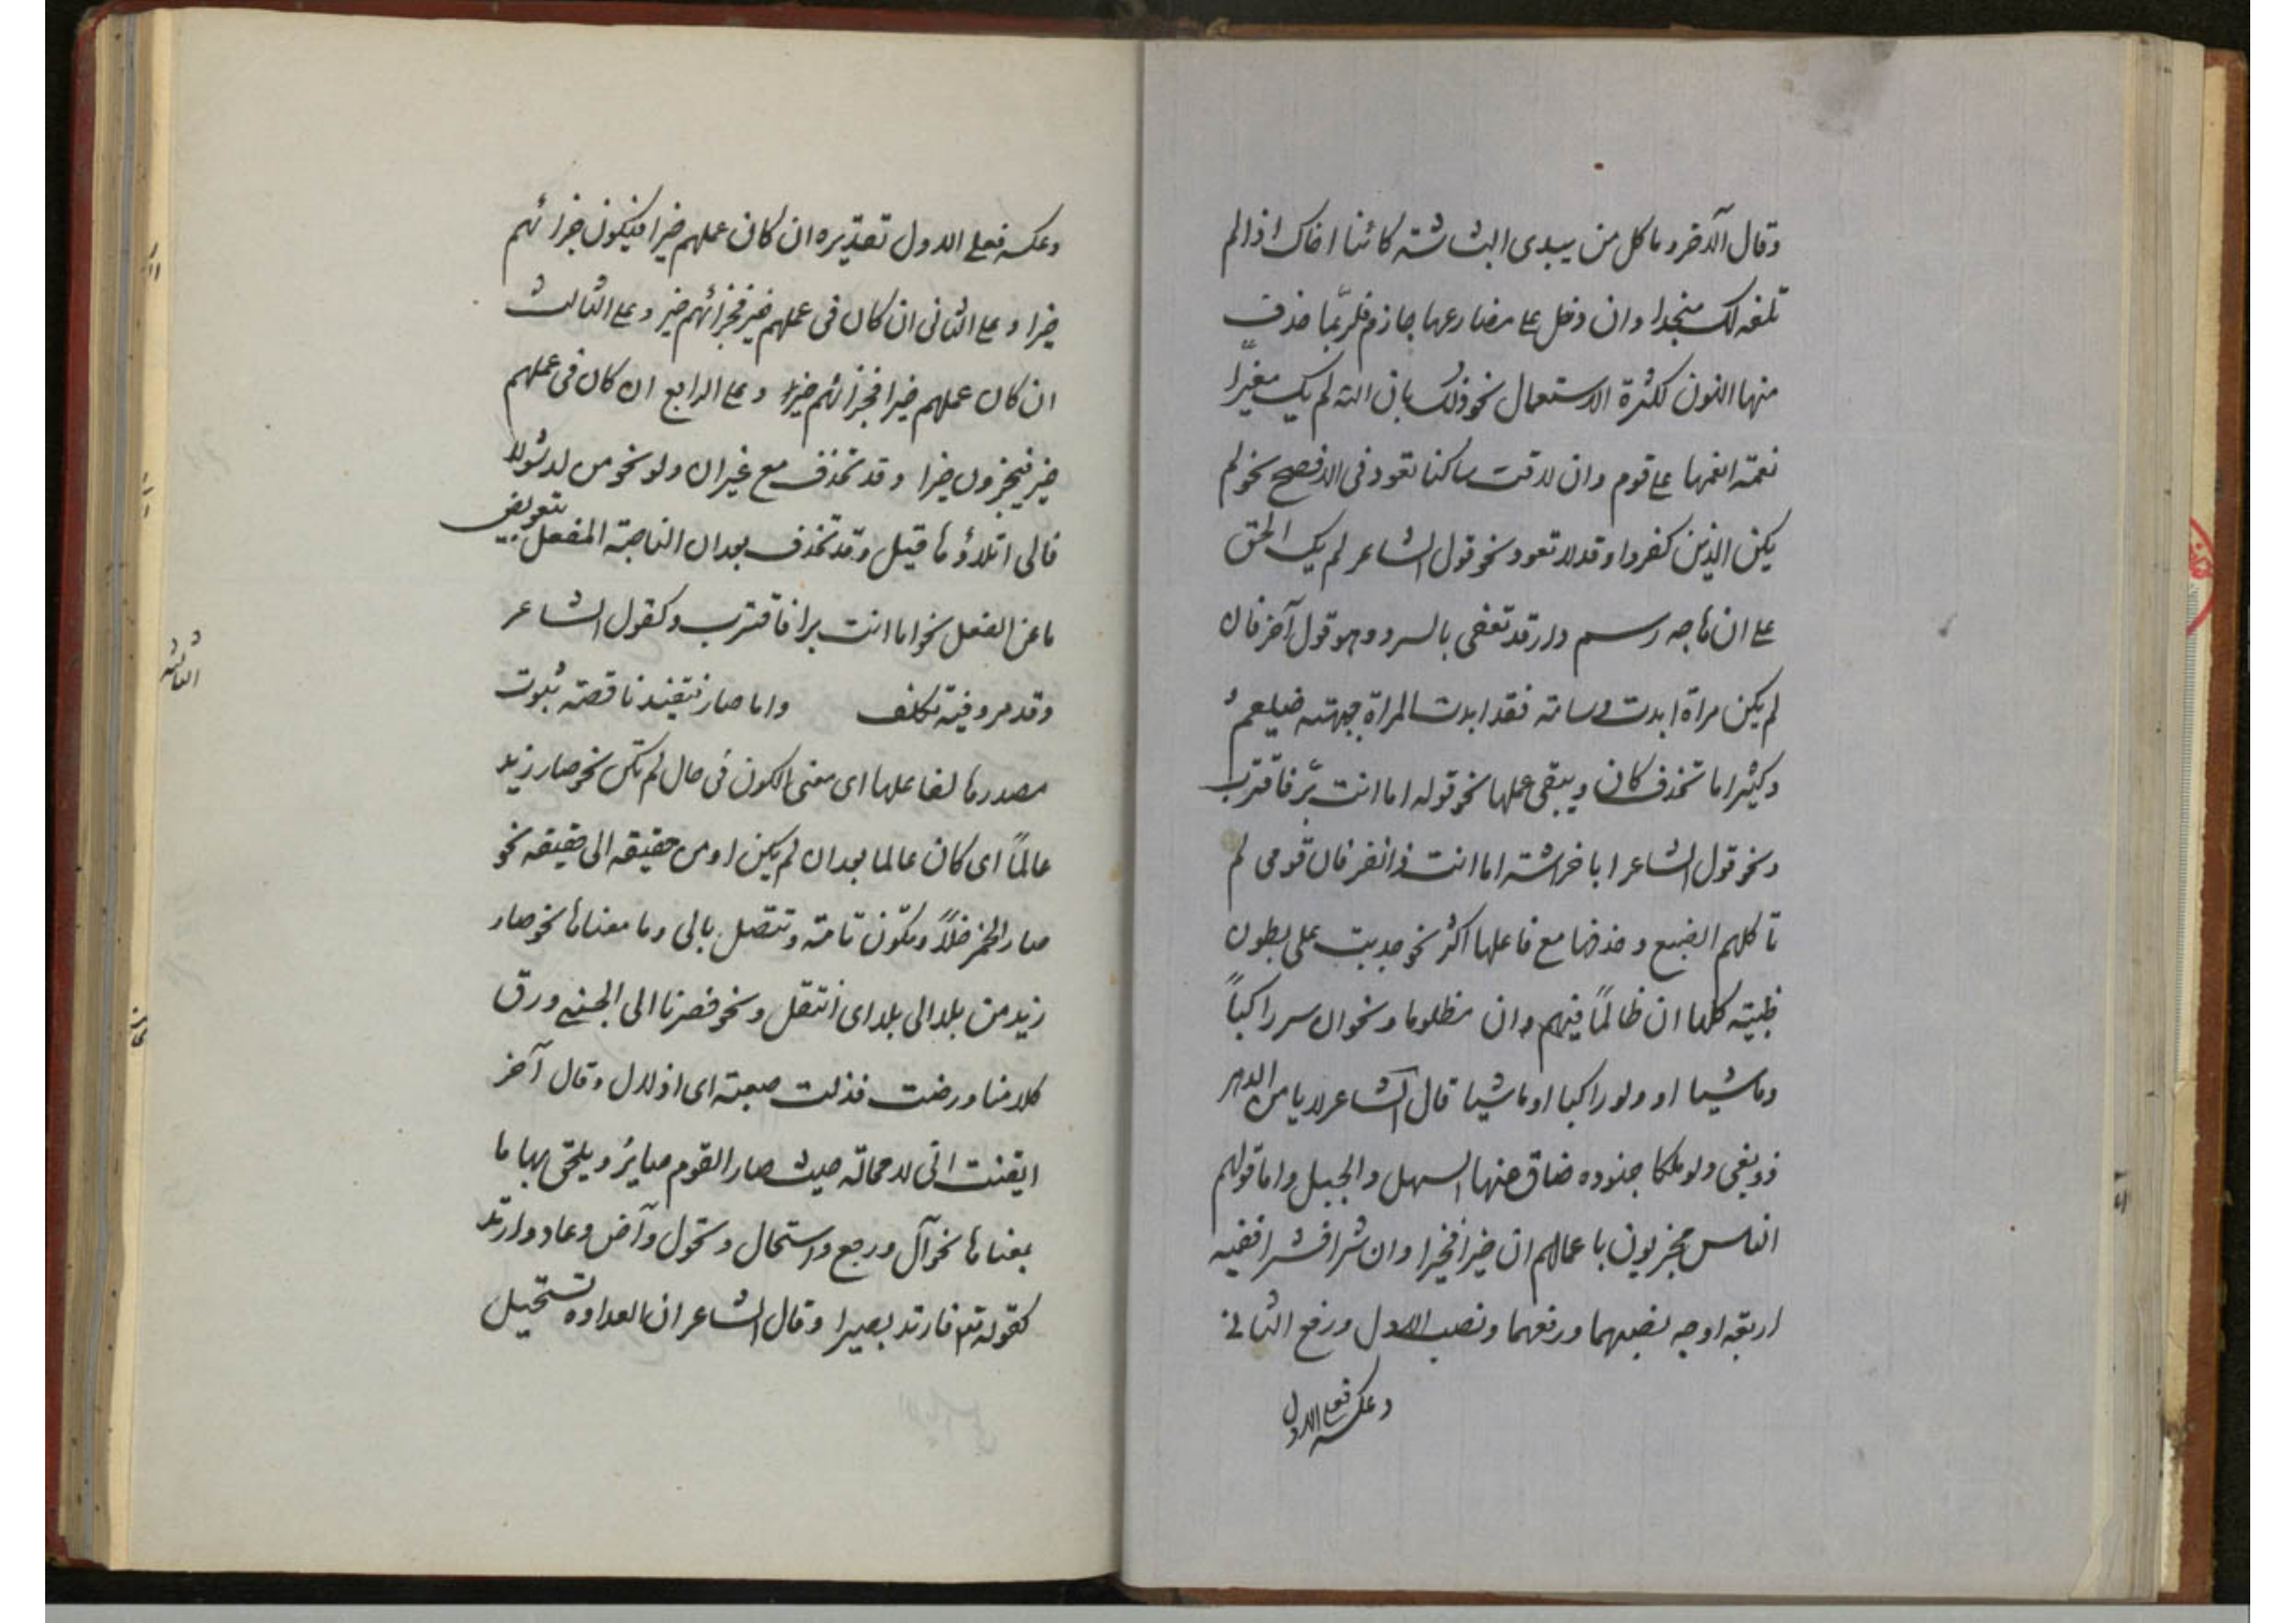 وقال الآخر وما كل من يبدى البشاشة كائنا اخاك اذا لم
تلفه لك منجدا وان دخل على مضارعها جازم فلربّما حذف
منها النون لكثرة الاستعمال نحو ذلك بان الله لم يك مغيّرا
نعمة انعمها على قوم وان لاقت ساكنا تعود فى الافصح نحو لم
يكن الذين كفروا وقد لا تعود نحو قول الشاعر لم يك الحق
على ان هاجه رسم دار قد تعفى بالسرر وهو قول آخر فان
لم يكن مراة ابدت وسامة فقد ابدت المراة جبهته ضيغم
وكثيرا ما تحذف كان ويبقى عملها نحو قوله اما انت برّ فاقترب
ونحو قول الشاعر ابا خراشة اما انت ذا نفر فان قومى لم
تاكلهم الضبع وحذفها مع فاعلها اكثر نحو حدبت على بطون
ظبية كلها ان ظالمًا فيهم وان مظلوما ونحو ان سر راكباً
وماشيا او ولو راكبا او ماشيا قال الشاعر لا يامن الدهر
ذو بغى ولو ملكا جنوده ضاق عنها السهل والجبل واما قولهم
الناس مجزيون باعمالهم ان خيرا فخيرا وان شرا فشرا ففيه
اربعة اوجه نصبهما ورفعهما ونصب الاول ورفع الثانى
وعكسه فعلى الاول
وعكسه فعلى الاول تقديره ان كان عملهم خيرا فيكون جزائهم
خيرا وعلى الثانى ان كان فى عملهم خير فجزائهم خير وعلى الثالث
ان كان عملهم خيرا فجزائهم خير وعلى الرابع ان كان فى عملهم
خير فيجزون خيرا وقد تحذف مع غير ان ولو نحو من لد شولا
فالى اتلاؤها قيل وقد تحذف بعد ان الناصبة المفعل بتعويض
ما عن الفعل نحو اما انت برا فاقترب وكقول الشاعر
وقد مر وفيه تكلف واما صار فتفيد ناقصة ثبوت
مصدرها لفاعلها اى معنى الكون فى حال لم تكن نحو صار زيد
عالمًا اى كان عالما بعد ان لم يكن او من حقيقة الى حقيقة نحو
صار الخمر خلاً وتكون تامة وتتصل بالى وما معناها نحو صار
زيد من بلد الى بلد اى انتقل ونحو فصرنا الى الحسنى ورق
كلامنا ورضت فذلت صعبة اى اذلال وقال آخر
ايقنت انى لا محالة حيث صار القوم صائر ويلحق بها ما
بمعناها نحو آل ورجع واستحال وتحول وآض وعاد وارتد
كقوله تعم فارتد بصيرا وقال الشاعر ان العداوة تستحيل